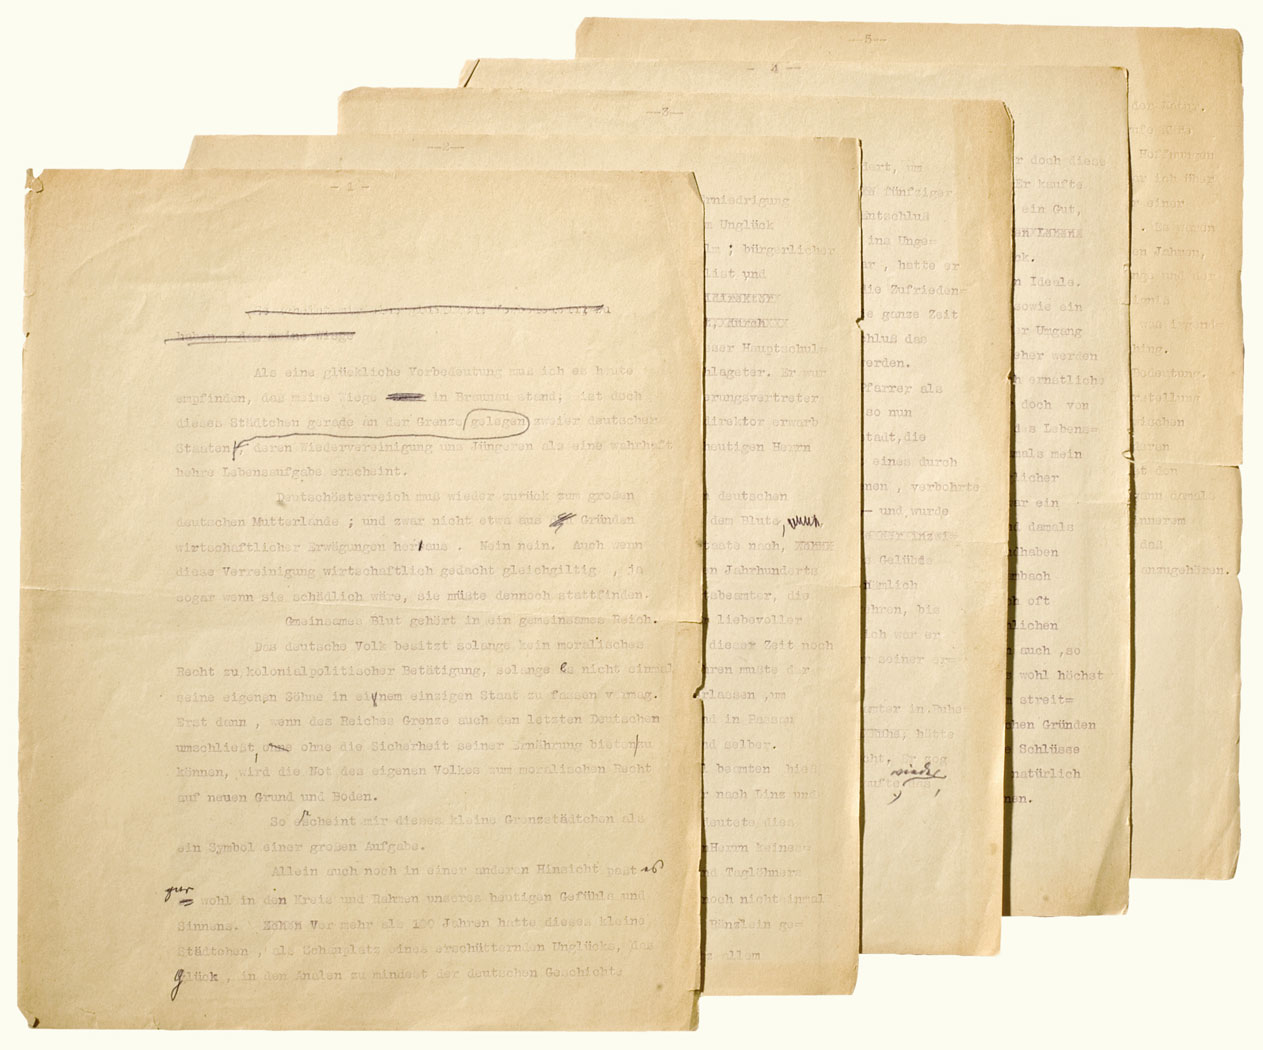 - 1 -
haben, das meine Wiege
Als eine glückliche Vorbedeutung mus ich es heute
empfinden, das meine Wiege in Braunau stand; ist doch
dieses Städtchen gerade an der Grenze gelegen zweier deutscher
Staaten, deren Wiedervereinigung uns Jüngeren als eine wahrhaft
hehre Lebensaufgabe erscheint.
Deutschösterreich muß wieder zurück zum großen
deutschen Mutterlande ; und zwar nicht etwa aus Gründen
wirtschaftlicher Erwägungen heraus . Nein nein. Auch wenn
diese Verreinigung wirtschaftlich gedacht gleichgiltig , ja
sogar wenn sie schädlich wäre, sie müßte dennoch stattfinden.
Gmeinsames Blut gehört in ein gemeinsames Reich.
Das deutsche Volk besitzt solange kein moralisches
Recht zu kolonialpolitischer Betätigung, solange es nicht einmal
seine eigenen Söhne in einem einzigen Staat zu fassen vermag.
Erst dann , wenn des Reiches Grenze auch den letzten Deutschen
umschließt, ohne ohne die Sicherheit seiner Ernährung bieten zu
können, wird die Not des eigenen Volkes zum moralischen Recht
auf neuen Grund und Boden.
So erscheint mir dieses kleine Grenzstädtchen als
ein Symbol einer großen Aufgabe.
Allein auch noch in einer anderen Hinsicht past es
gar wohl in den Kreis und Rahmen unseres heutigen Gefühls und
Sinnens. Vor mehr als 100 Jahren hatte dieses kleine
Städtchen , als Schauplatz eines erschütternden Unglücks, das
Glück , in den Analen zu mindest der deutschen Geschichte
--2--
rniedrigung
Unglück
; bürgerlicher
list und
ser Hauptschuld
hlageter. Er wur
erungsvertreter
direktor erwarb
heutigen Herrn
deutschen
dem Blute,
taate nach,
en Jahrhunderts
tsbeamter, die
liebevoller
dieser Zeit noch
hren mußte der
rlassen ,um
nd in Passau
nd selber.
beamten hieß
r nach Linz und
deutete dies
Herrn keines=
nd Taglöhners
noch nicht einmal
Bünzlein ge=
allem
--3--
dert, um
fünfziger
ntschluß
ins Unge=
ar , hatte er
die Zufrieden=
e ganze Zeit
chluß das
werden.
Pfarrer als
so nun
stadt,die
eines durch
nen , verbohrte
und wurde
inzwi=
Gelübde
nämlich
ehren, bis
ich war er
seiner
amter in Ruhe
Ruhe, hätte
cht, Er zog
wieder
aufte das
- 4 --
r doch diese
Er kaufte
ein Gut,
ck.
Ideale.
sowie ein
er Umgang
eher werden
ernstliche
doch von
des Lebens=
mals mein
licher
war ein
damals
ndhaben
mbach
oft
lichen
auch ,so
wohl höchst
streit=
chen Gründen
Schlüsse
natürlich
nen.
--5--
Hoffnung
ich über
einer
. Es waren
en Jahren,
Bedeutung.
rstellung
wischen
deren
ist den
wann damals
innerem
daß
anzugehören.